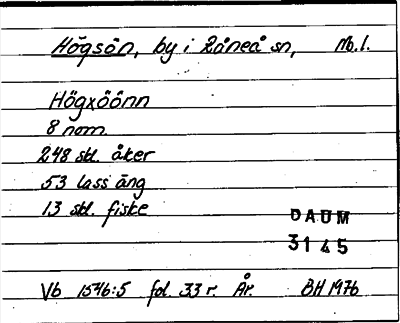 Högsön, by i Råneå sn, Nb.l.
Högxöönn
8 nom.
248 skl. åker
53 lass äng
13 skl. fiske
DAUM
3145
Vb 1546:5 fol. 33 r. År. BH 1976